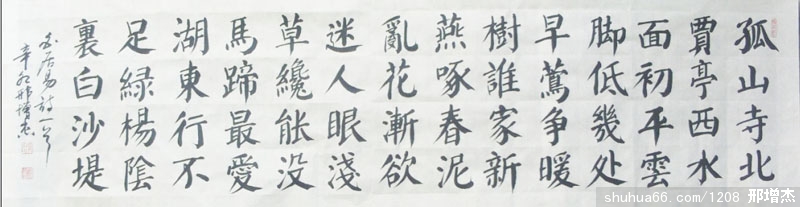 孤山寺北
賈亭西水
面初平雲
脚低幾处
早鶯争暖
樹誰家新
燕啄春泥
亂花漸欲
迷人眼淺
草纔能没
馬蹄最愛
湖東行不
足緑楊陰
裏白沙堤
白居易诗一首
辛卯邢增杰
shuhua66.com/1208 邢增杰